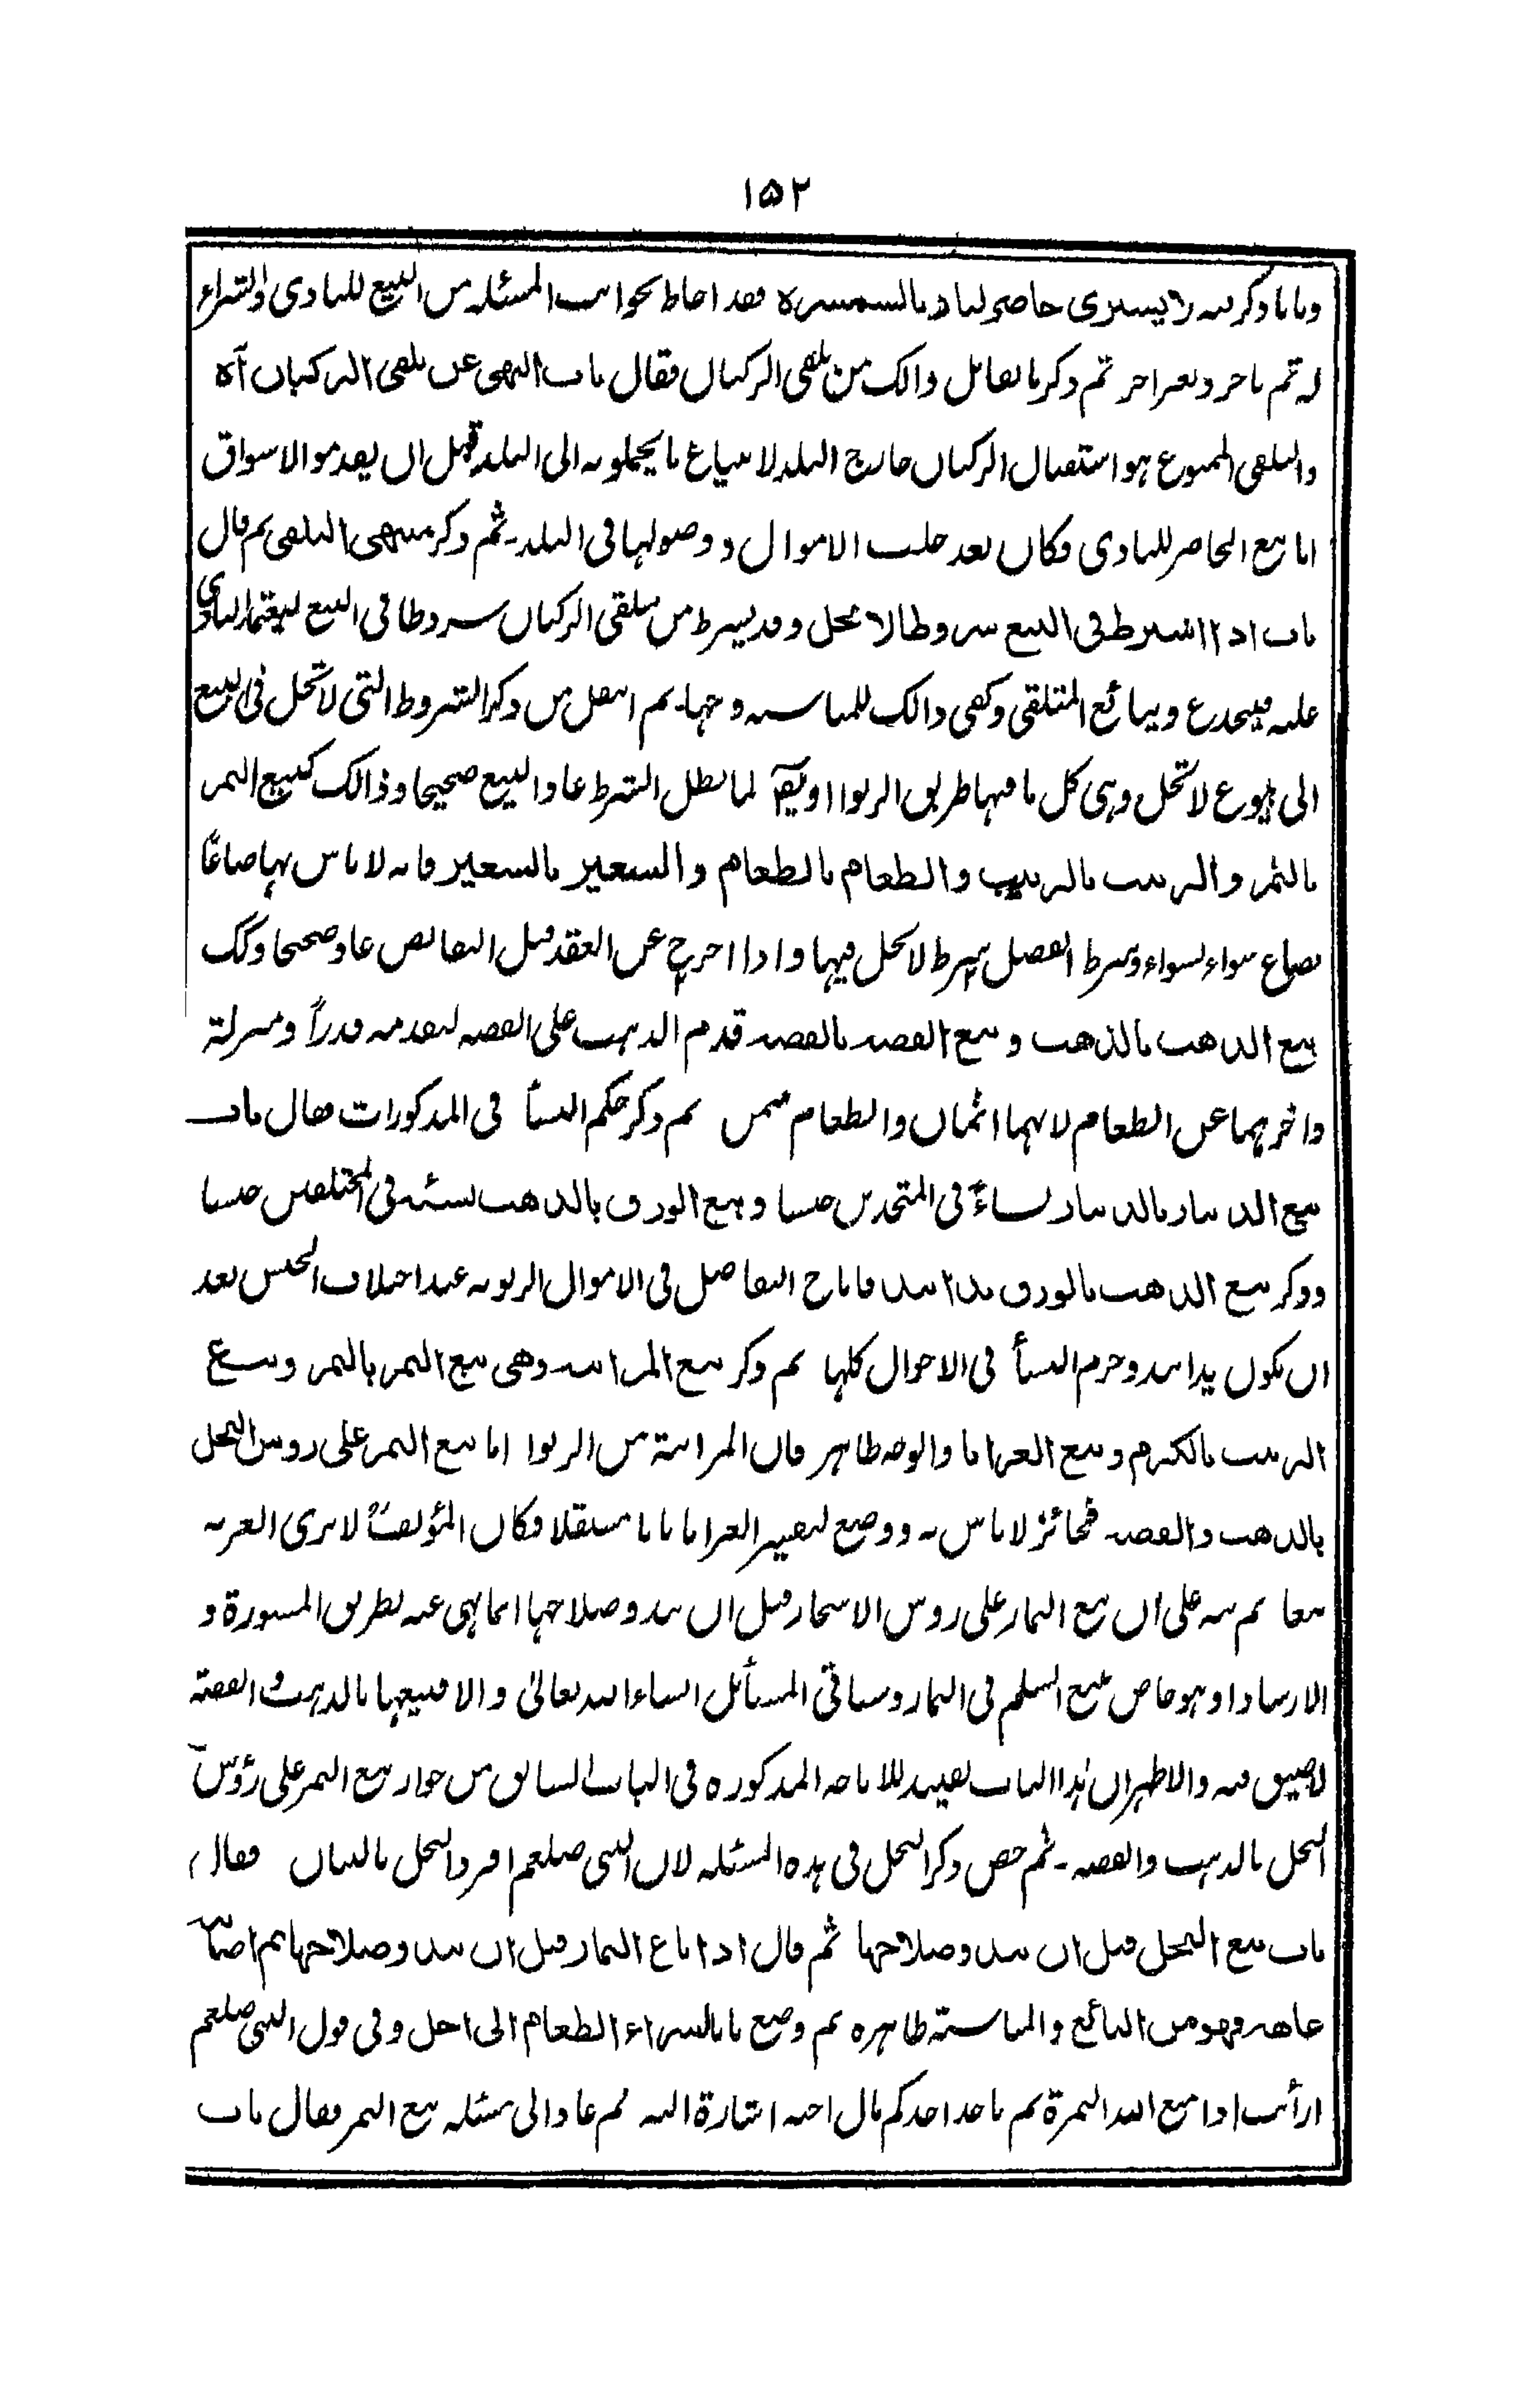 ١٥٢
وبابا ذكر فيه لا يشترى حاضر لباد بالسمسرة فقد احاط بجوانب المسئلة من البيع للبادى والشراء
له ثم باجر وبغير اجر ثم ذكر ما يقابل ذالك من تلقى الركبان فقال باب النهى عن تلقى الركبان آه
والتلقى الممنوع هو استقبال الركبان خارج البلد لابتياع ما يحملونه الى البلد قبل ان يقدموا الاسواق
اما بيع الحاضر للبادى فكان بعد جلب الاموال ووصولها فى البلد۔ ثم ذكر منتهى التلقى ثم قال
باب اذا اشترط فى البيع شروطا لا تحل وقد يشترط من يتلقى الركبان شروطا فى البيع ليعتمد البادى
عليه فينخدع ويبائع المتلقى وكفى ذالك للمناسبة وجها۔ ثم انتقل من ذكر الشروط التى لا تحل فى البيع
الى بيوع لا تحل وهى كل ما فيها طريق الربوا او يقال لما بطل الشرط عاد البيع صحيحا وذالك كبيع التمر
بالتمر والزبيب بالزبيب والطعام بالطعام والشعير بالشعير فانه لا باس بها صاعًا
بصاع سواء بسواء وشرط الفضل شرط لا يحل فيها واذا اخرج عن العقد قبل التقابض عاد صحيحا وكك
بيع الذهب بالذهب وبيع الفضة بالفضة قدم الذهب على الفضة لتقدمه قدراً ومنزلة
واخرهما عن الطعام لانهما اثمان والطعام مثمن ثم ذكر حكم النسأ فى المذكورات فقال باب
بيع الدينار بالدينار نساءً فى المتحدين جنسا وبيع الورق بالذهب نسئة فى المختلفين جنسا
وذكر بيع الذهب بالورق يدا بيد فاباح التفاضل فى الاموال الربوية عند اختلاف الجنس بعد
ان يكون يدا بيد وحرم النسأ فى الاحوال كلها ثم ذكر بيع المزابنة وهى بيع التمر بالثمر وبيع
الزبيب بالكرم وبيع العرايا والوجه ظاهر فان المزابنة من الربوا اما بيع الثمر على روس النخل
بالذهب والفضة فجائز لا باس به ووضع لتفسير العرايا بابا مستقلا فكان المؤلفؒ لا يرى العرية
بيعا ثم نبه على ان بيع الثمار على روس الاشجار قبل ان يبدو صلاحها انما نهى عنه بطريق المشورة و
الارشاد او هو خاص ببيع السلم فى الثمار وسياتى المسأئل انشاء الله تعالىٰ والا فبيعها بالذهب والفضة
لا ضيق فيه والاظهر ان هٰذا الباب تقييد للاباحة المذكورة فى الباب السابق من جواز بيع الثمر على رؤس
النخل بالذهب والفضة۔ ثم خص ذكر النخل فى هذه المسئلة لان النبى صلعم افرد النخل بالبيان فقال
باب بيع النخل قبل ان يبدو صلاحها ثم قال اذا باع الثمار قبل ان يبدو صلاحها ثم اصابته
عاهة فهو من البائع والمناسبة ظاهرة ثم وضع بابا لشراء الطعام الى اجل وفى قول النبى صلعم
ارأيت اذا منع الله الثمرة بم ياخذ احدكم مال اخيه اشارة اليه ثم عاد الى مسئلة بيع التمر فقال باب